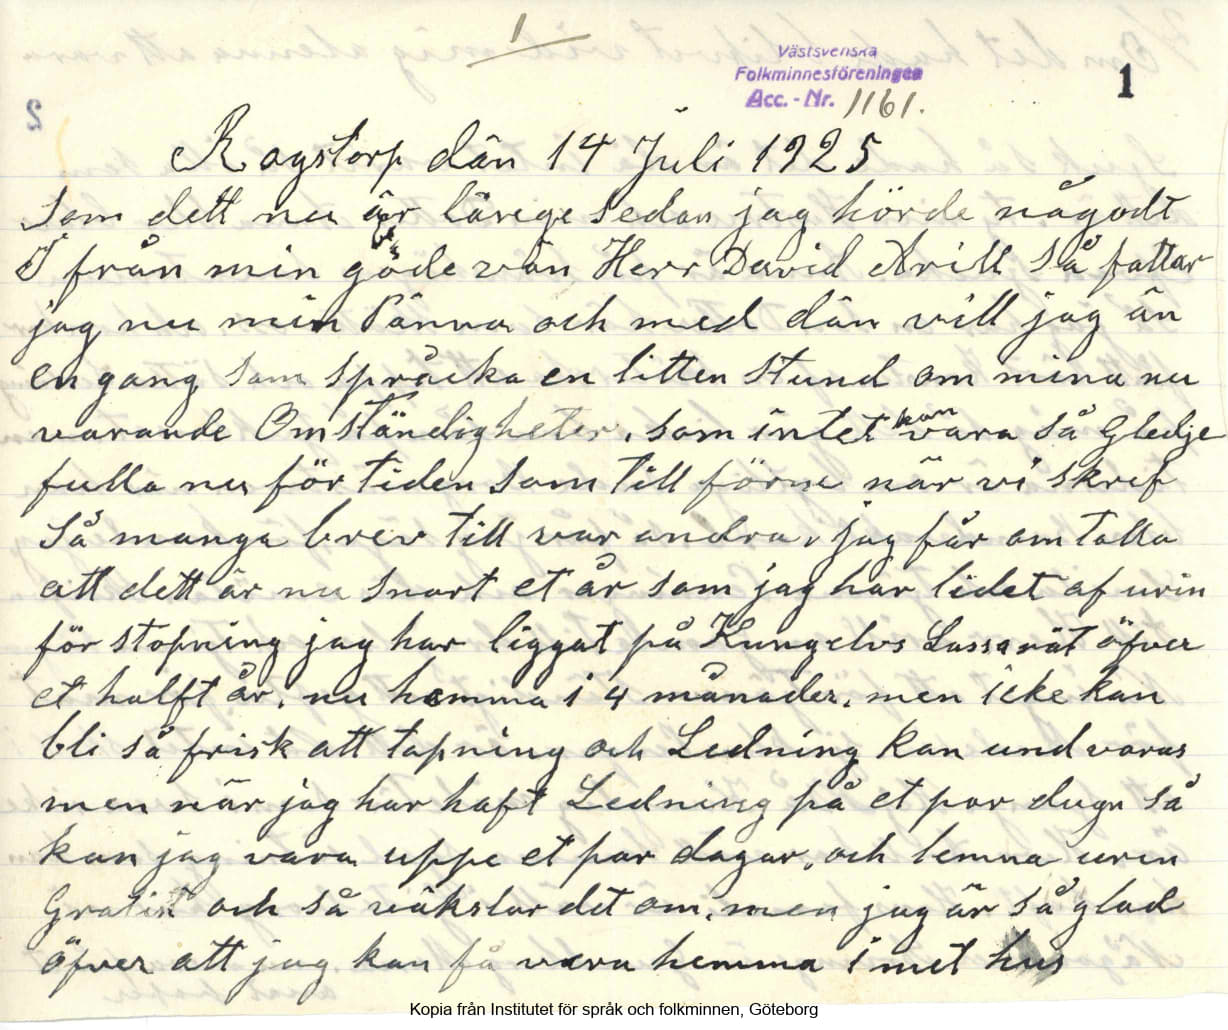 1
Västsvenska
Folkminnesföreningen
Acc. - Nr. 1161.
1
2
Rogstorp dän 14 Juli 1925
Som dett nu är länge sedan jag hörde någodt
I från min gode vän Herr David Arill Så fattar
jag nu min Pänna och med dän vill jag än
en gang Som språcka en litten Stund om mina nu
varande Omständigheter, som intet kan vara så Gledje
fulla nu för tiden Som till förne när vi skref
Så manga brev till var andra, jag får omtalla
att dett är nu Snart et år som jag har lidet af urin
för stopning jag har liggat på Kungelvs Lassarät öfver
et halft år, nu hemma i 4 månader, men icke kan
bli så frisk att tapning och Ledning kan undvaras
men när jag har haft Ledning på et par dugn Så
kan jag vara uppe et par dagar, och lemna uren
Gratist och så väkslar det om, men jag är så glad
öfver att jag kan få vara hemma i met hus
Kopia från Institutet för språk och folkminnen, Göteborg